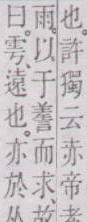 也。許獨云赤帝者
雨。以于𦿉而求。故
曰。雩、遠也。亦於